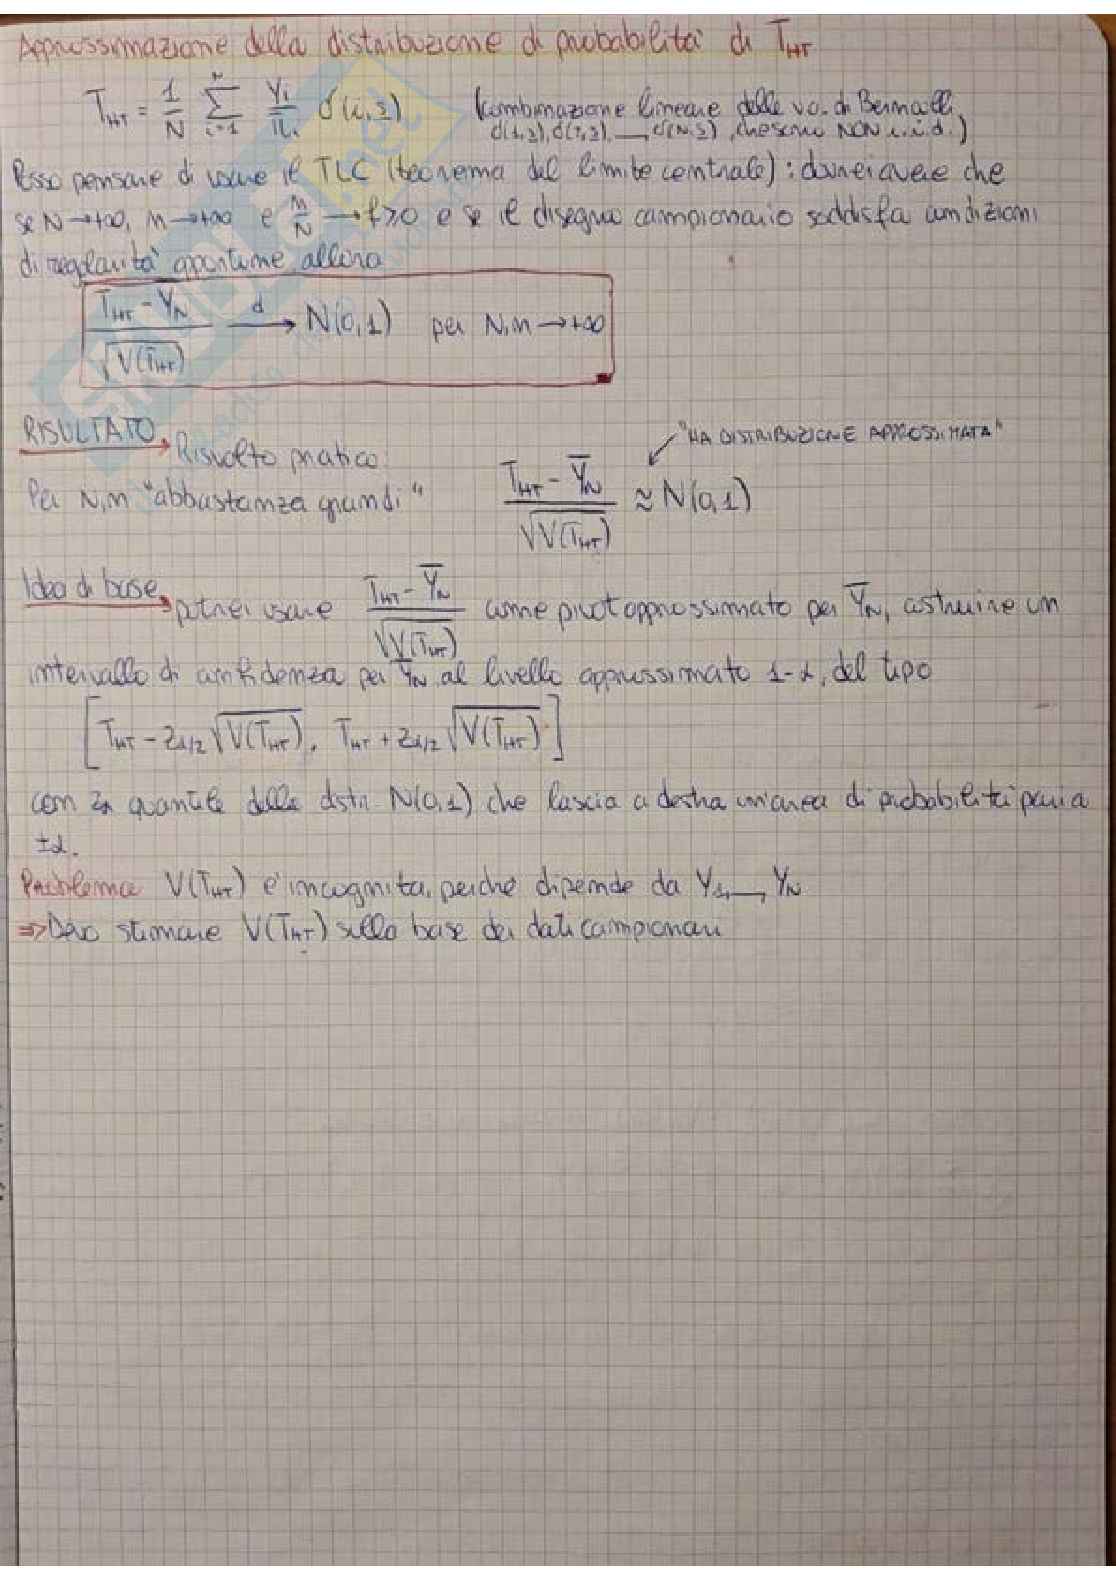 Approssimazione della distribuzione di probabilità di T_HT
T_HT = 1/N Σ_{i=1}^{N} Y_i/π_i δ(i,s) (combinazione lineare delle v.a. di Bernoulli
δ(1,s), δ(2,s), __, δ(N,s), che sono NON i.i.d.)
Posso pensare di usare il TLC (teorema del limite centrale): dovrei avere che
se N→+∞, n→+∞ e n/N →f>0 e se il disegno campionario soddisfa condizioni
di regolarità opportune allora
(T_HT - Y_N)/√V(T_HT) →d N(0,1) per N,n→+∞
RISULTATO → Risvolto pratico:
"HA DISTRIBUZIONE APPROSSIMATA"
Per N,n "abbastanza grandi" (T_HT - Ȳ_N)/√V(T_HT) ≈ N(0,1)
Idea di base → potrei usare (T_HT - Ȳ_N)/√V(T_HT) come pivot approssimato per Ȳ_N, costruire un
intervallo di confidenza per Ȳ_N al livello approssimato 1-α, del tipo
[T_HT - z_α/2 √V(T_HT), T_HT + z_α/2 √V(T_HT)]
con z_α quantile della distr. N(0,1) che lascia a destra un'area di probabilità pari a
±α.
Problema V(T_HT) è incognita, perché dipende da Y_1, __, Y_N
⇒ Devo stimare V(T_HT) sulla base dei dati campionari